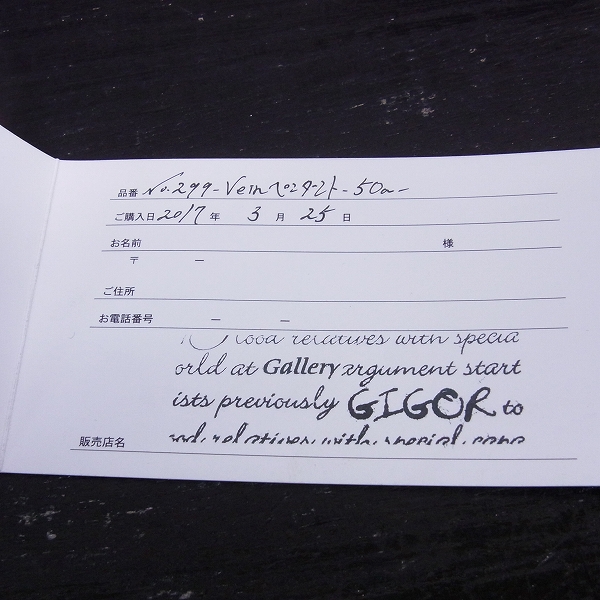 品番 No.299-Veinペンダント-50a-
ご購入日 2017 年 3 月 25 日
お名前 様
〒 －
ご住所
お電話番号 － －
blood relatives with specia
orld at Gallery argument start
ists previously GIGOR to
販売店名